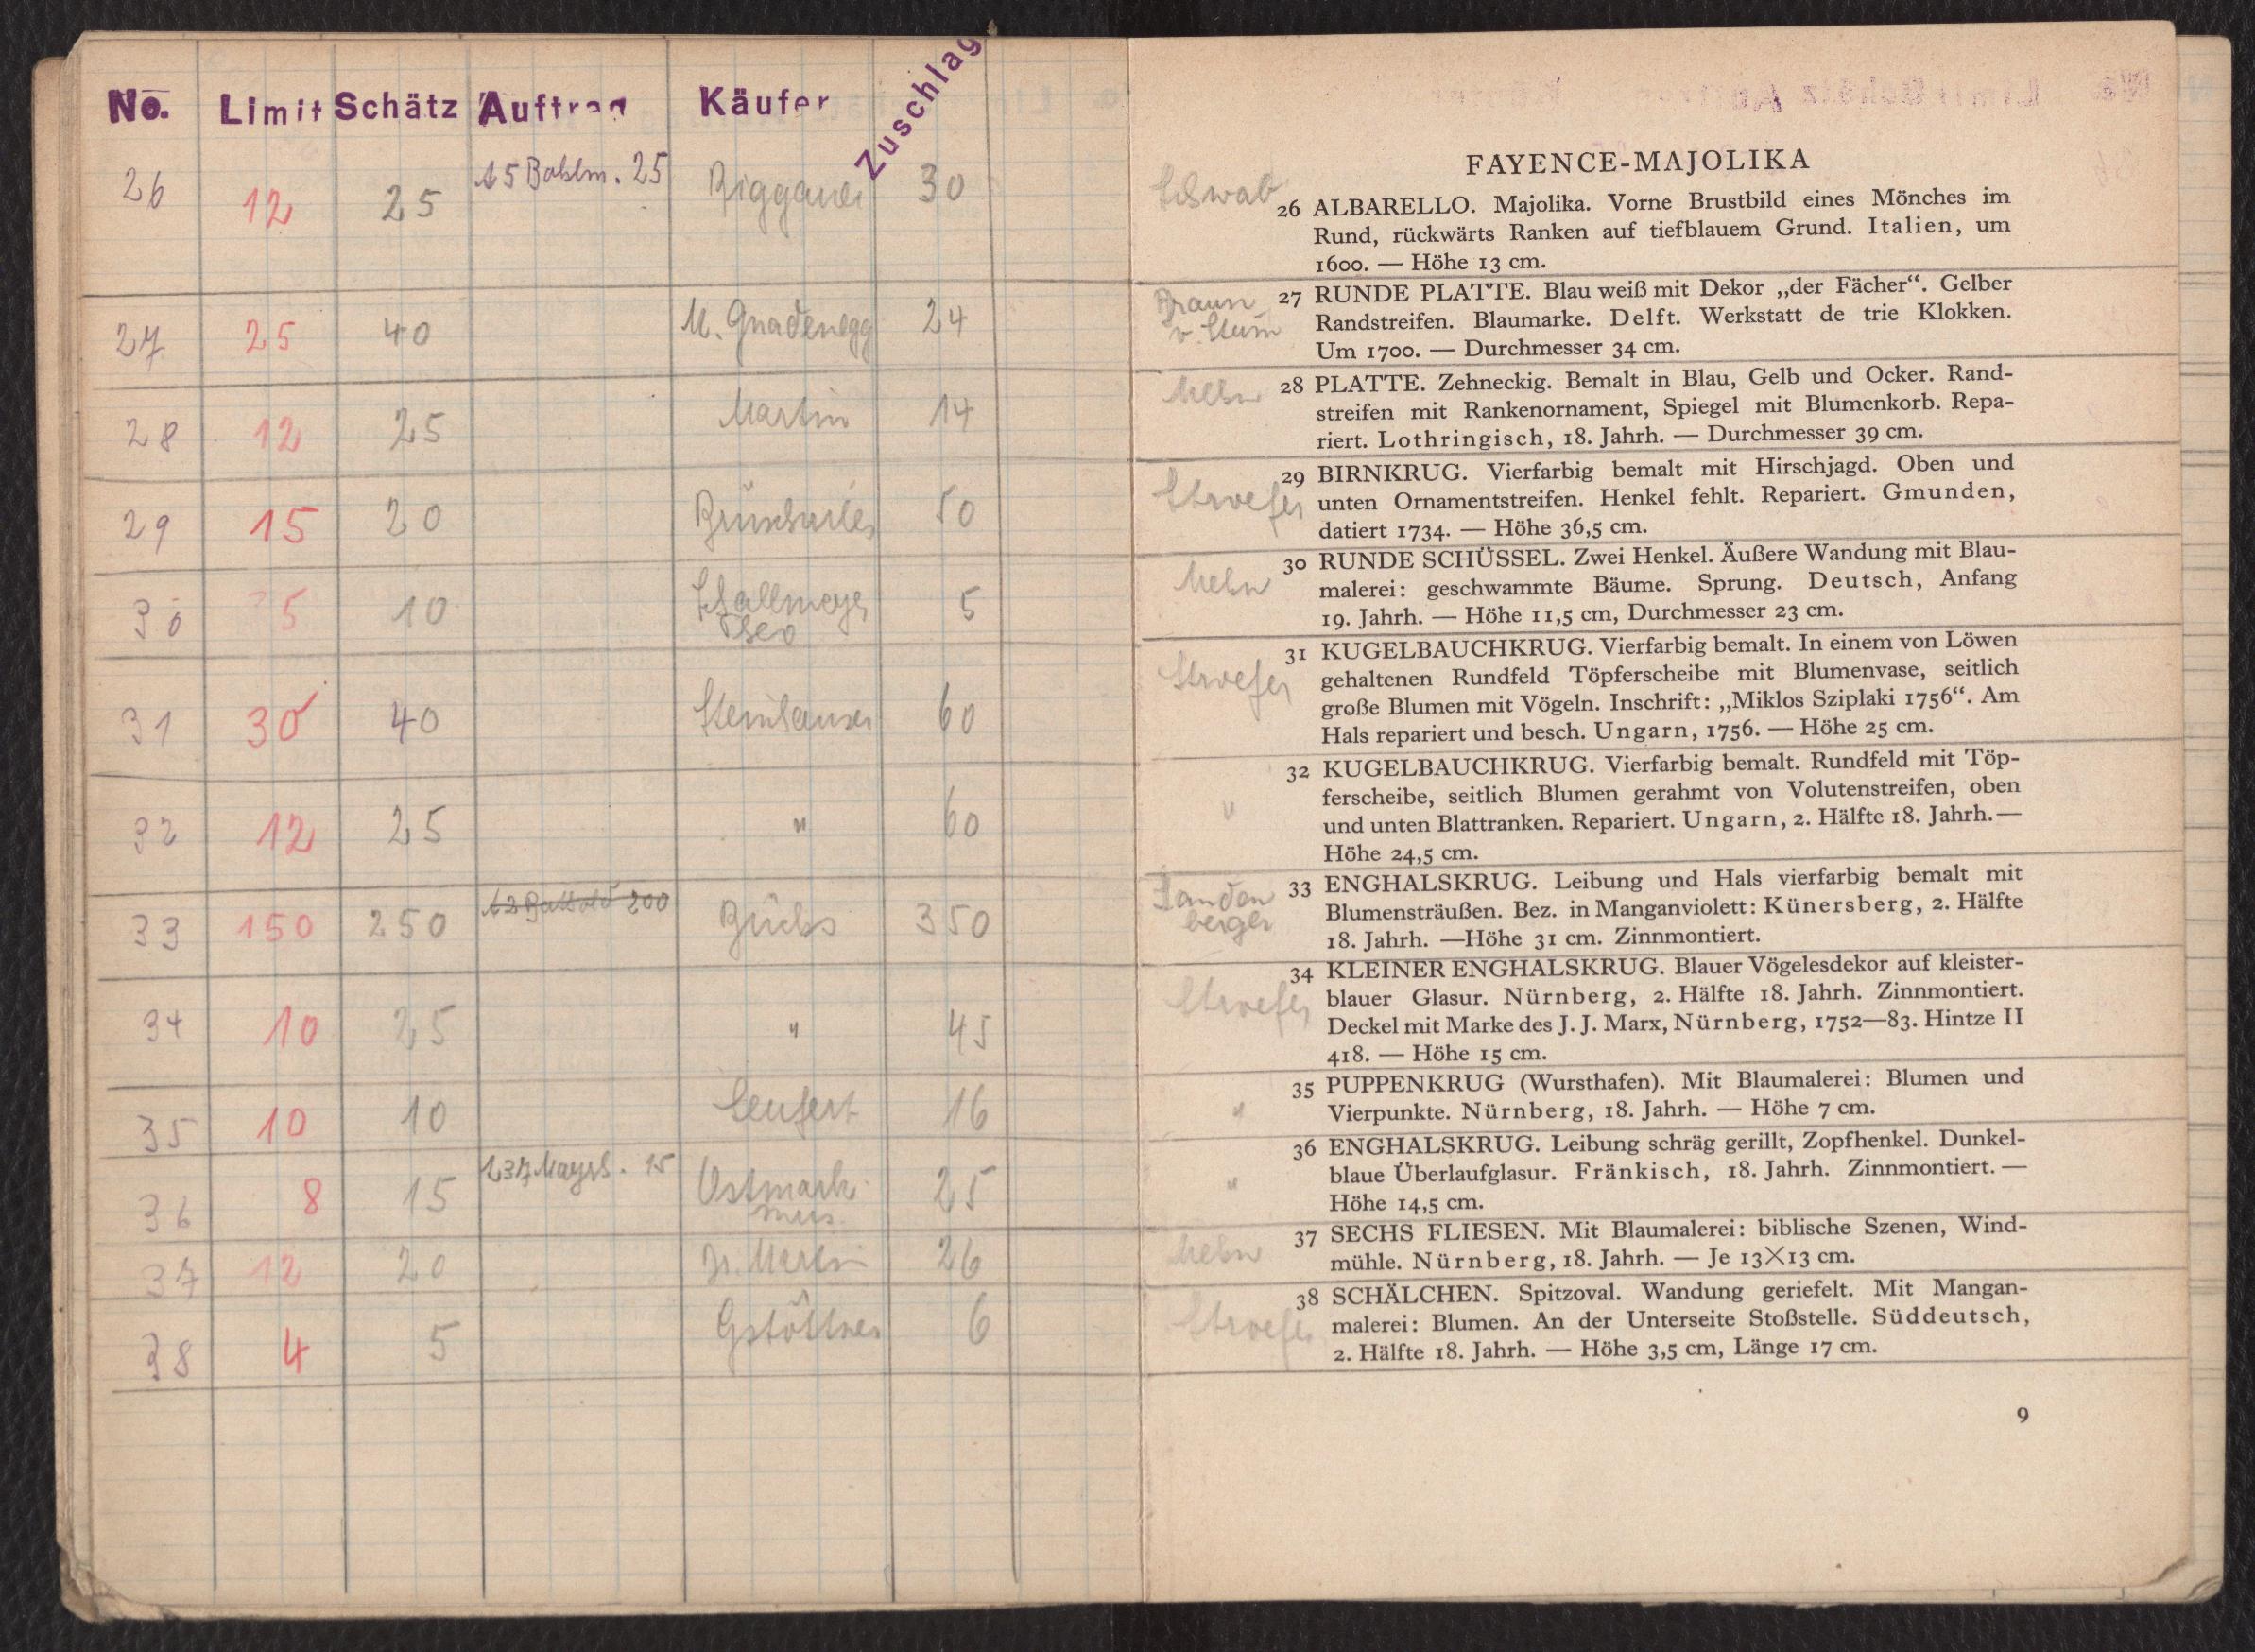 No. Limit Schätz Auftrag Käufer Zuschlag
26 12 25 25 30
27 25 40 M. Gnadenegg 24
28 12 25 Martin 14
29 15 20 50
30 5 10 5
31 30 40 60
32 12 25 " 60
33 150 250 200 350
34 10 25 " 45
35 10 10 Seufert 16
36 8 15 15 Ostmark. 25
mus.
37 12 20 Dr. Martin 26
38 4 5 Gstöttner 6
FAYENCE-MAJOLIKA
Schwab
26 ALBARELLO. Majolika. Vorne Brustbild eines Mönches im
Rund, rückwärts Ranken auf tiefblauem Grund. Italien, um
1600. — Höhe 13 cm.
Braun
27 RUNDE PLATTE. Blau weiß mit Dekor „der Fächer“. Gelber
v. Stum
Randstreifen. Blaumarke. Delft. Werkstatt de trie Klokken.
Um 1700. — Durchmesser 34 cm.
28 PLATTE. Zehneckig. Bemalt in Blau, Gelb und Ocker. Rand-
streifen mit Rankenornament, Spiegel mit Blumenkorb. Repa-
riert. Lothringisch, 18. Jahrh. — Durchmesser 39 cm.
29 BIRNKRUG. Vierfarbig bemalt mit Hirschjagd. Oben und
Stroefer
unten Ornamentstreifen. Henkel fehlt. Repariert. Gmunden,
datiert 1734. — Höhe 36,5 cm.
30 RUNDE SCHÜSSEL. Zwei Henkel. Äußere Wandung mit Blau-
malerei: geschwammte Bäume. Sprung. Deutsch, Anfang
19. Jahrh. — Höhe 11,5 cm, Durchmesser 23 cm.
31 KUGELBAUCHKRUG. Vierfarbig bemalt. In einem von Löwen
Stroefer
gehaltenen Rundfeld Töpferscheibe mit Blumenvase, seitlich
große Blumen mit Vögeln. Inschrift: „Miklos Sziplaki 1756“. Am
Hals repariert und besch. Ungarn, 1756. — Höhe 25 cm.
32 KUGELBAUCHKRUG. Vierfarbig bemalt. Rundfeld mit Töp-
ferscheibe, seitlich Blumen gerahmt von Volutenstreifen, oben
"
und unten Blattranken. Repariert. Ungarn, 2. Hälfte 18. Jahrh. —
Höhe 24,5 cm.
33 ENGHALSKRUG. Leibung und Hals vierfarbig bemalt mit
berger
Blumensträußen. Bez. in Manganviolett: Künersberg, 2. Hälfte
18. Jahrh. —Höhe 31 cm. Zinnmontiert.
34 KLEINER ENGHALSKRUG. Blauer Vögelesdekor auf kleister-
Stroefer
blauer Glasur. Nürnberg, 2. Hälfte 18. Jahrh. Zinnmontiert.
Deckel mit Marke des J. J. Marx, Nürnberg, 1752—83. Hintze II
418. — Höhe 15 cm.
35 PUPPENKRUG (Wursthafen). Mit Blaumalerei: Blumen und
"
Vierpunkte. Nürnberg, 18. Jahrh. — Höhe 7 cm.
36 ENGHALSKRUG. Leibung schräg gerillt, Zopfhenkel. Dunkel-
"
blaue Überlaufglasur. Fränkisch, 18. Jahrh. Zinnmontiert. —
Höhe 14,5 cm.
37 SECHS FLIESEN. Mit Blaumalerei: biblische Szenen, Wind-
mühle. Nürnberg, 18. Jahrh. — Je 13×13 cm.
38 SCHÄLCHEN. Spitzoval. Wandung geriefelt. Mit Mangan-
Stroefer
malerei: Blumen. An der Unterseite Stoßstelle. Süddeutsch,
2. Hälfte 18. Jahrh. — Höhe 3,5 cm, Länge 17 cm.
9